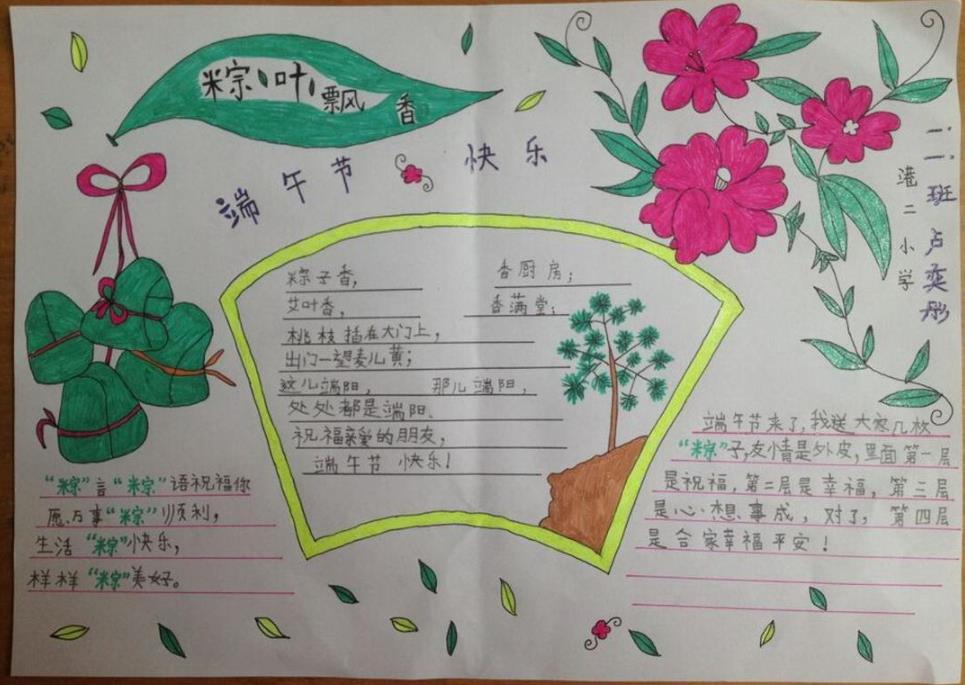 粽叶飘香
端午节 快乐
二、二班 卢奕彤
港二小学
粽子香， 香厨房；
艾叶香， 香满堂；
桃枝插在大门上，
出门一望麦儿黄；
这儿端阳， 那儿端阳，
处处都是端阳、
祝福亲爱的朋友，
端午节 快乐！
“粽”言“粽”语祝福你
愿万事“粽”顺利，
生活“粽”快乐，
样样“粽”美好。
端午节来了，我送大家几枚
“粽”子，友情是外皮，里面第一层
是祝福，第二层是幸福，第三层
是心想事成，对了，第四层
是合家幸福平安！